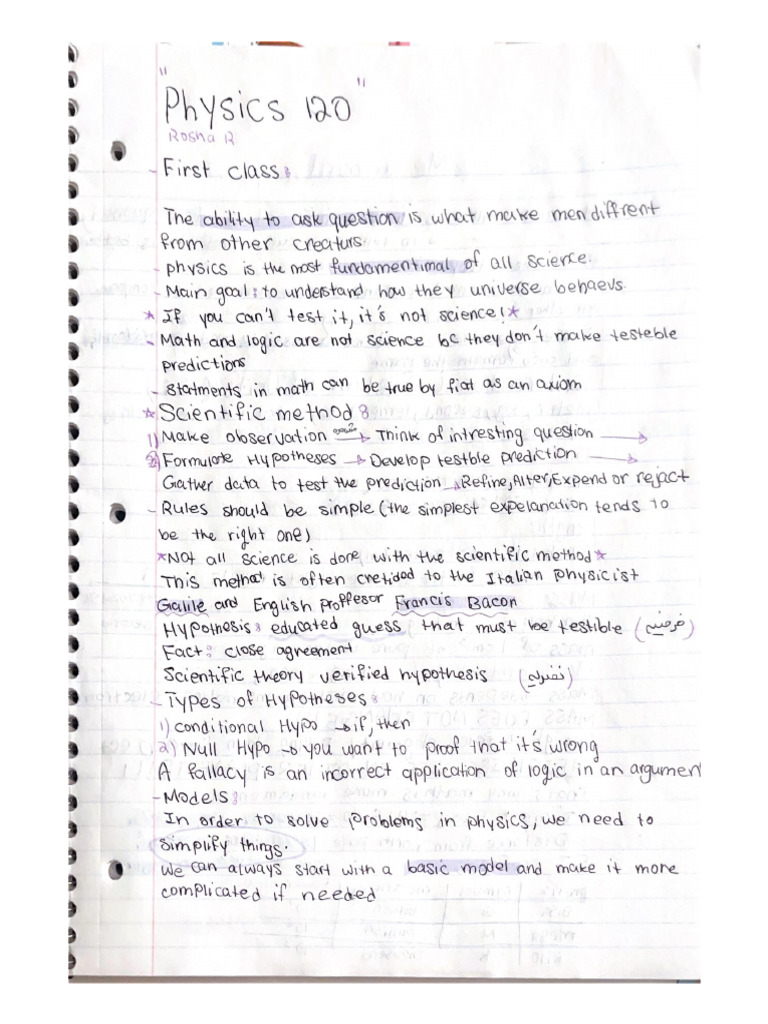 "Physics 120"
Rosha R
- First class:
The ability to ask question is what make men diffrent
from other creaturs.
- Physics is the most fundamentimal of all science.
- Main goal: to understand how they universe behaevs.
* If you can't test it, it's not science! *
- Math and logic are not science bc they don't make testeble
predictions
- Statments in math can be true by fiat as an axiom
* Scientific method:
1) Make observation → Think of intresting question →
2) Formulate Hypotheses → Develop testble prediction →
Gather data to test the prediction → Refine, Alter, Expend or reject
- Rules should be simple (the simplest expelanation tends to
be the right one)
* Not all science is done with the scientific method *
This method is often cretided to the Italian Physicist
Galile and English proffesor Francis Bacon
Hypothesis: educated guess that must be testible (فرضیه)
Fact: close agreement
Scientific theory verified hypothesis
- Types of Hypotheses:
1) conditional Hypo → if, then
2) Null Hypo → you want to proof that it's wrong
A fallacy is an incorrect application of logic in an argumen
- Models:
In order to solve problems in physics, we need to
simplify things.
We can always start with a basic model and make it more
complicated if needed